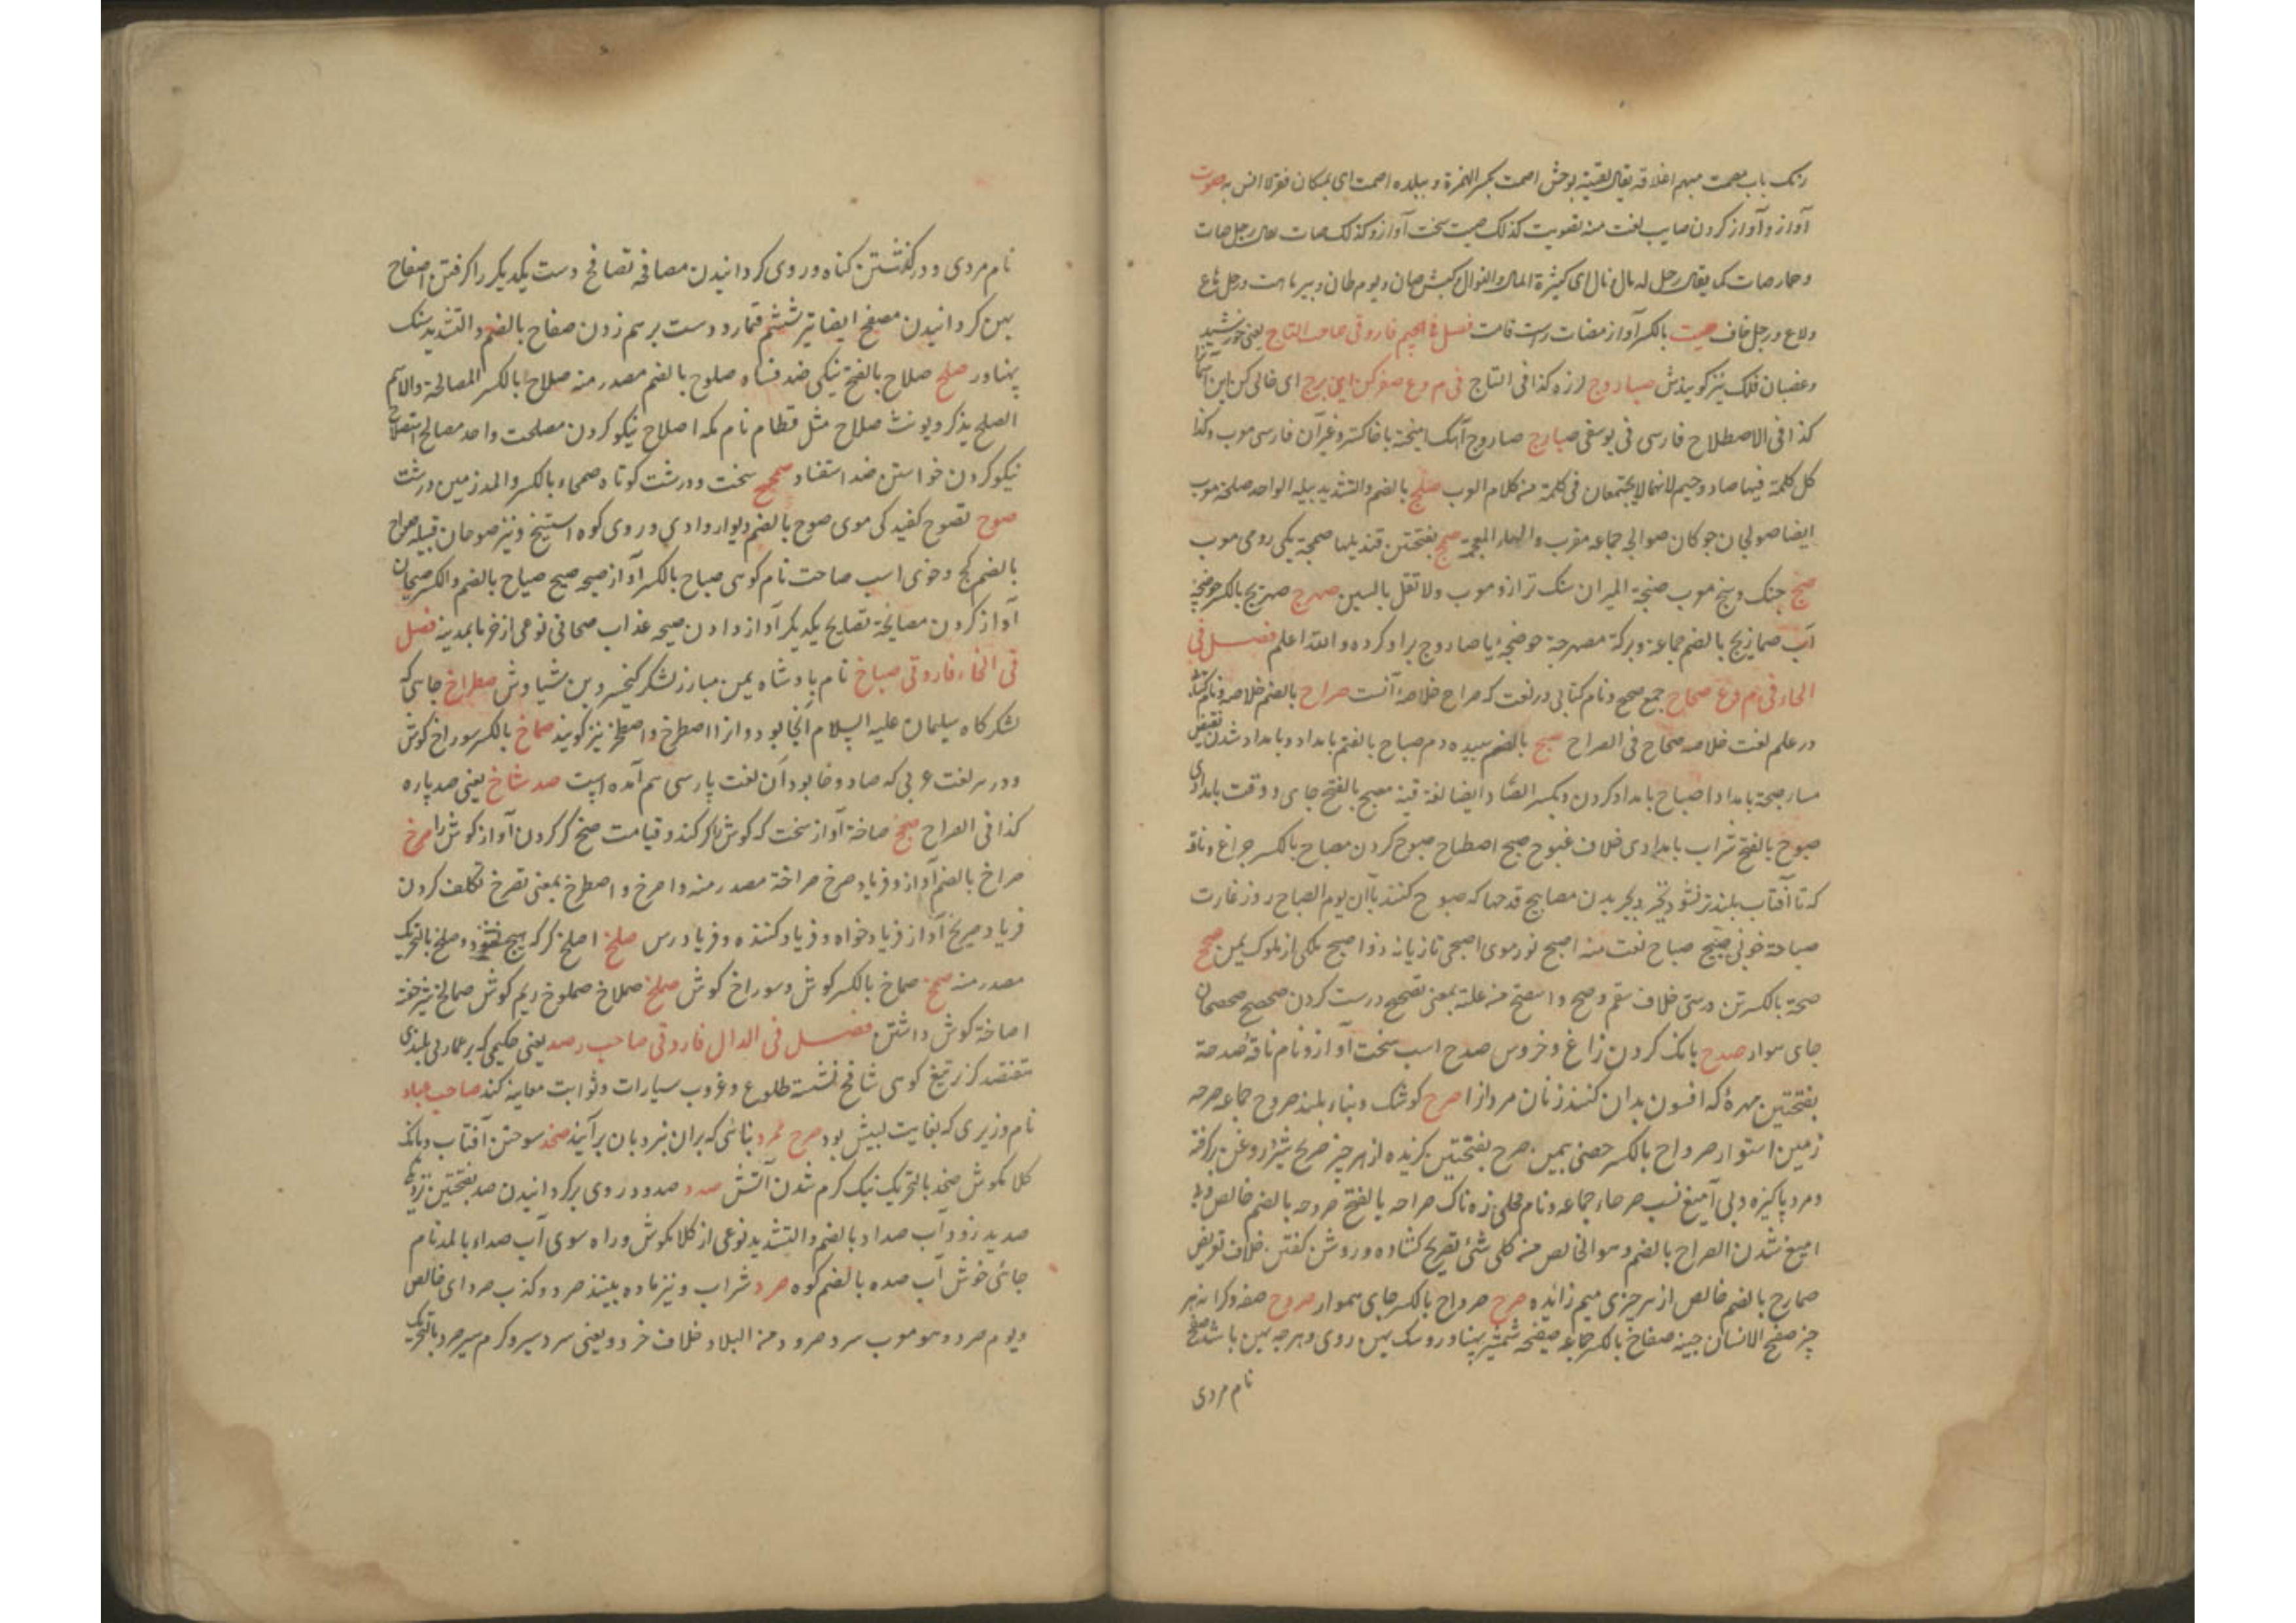 رنک باب مصمت مبهم اغلاقه یقال لقیته بوحش اصمت بکسر الهمزة و ببلده اصمت ای بمکان قفر لا انس به صوت
آواز و آواز کردن صایب لغت منه تصویت کذلک صیت سخت آواز و کذلک صات یقال رجل صات
و حمار صات کما یقال رجل له مال نال ای کثیرة المال والنوال و کبش صان و یوم طان و بیر ماهت و رجل شاع
ولاع و رجل خاف صیت بالکسر آواز مضات راست قامت فصل فی الجیم فاروقی صاحب التاج یعنی خورشید
و غضبان فلک نیز کویندش صباروج لرزه کذا فی التاج فی م و ع صفر کن این برج ای خالی کن این
کذا فی الاصطلاح فارسی فی یوسفی صاروج آهک امیخته با خاکستر و غیر آن فارسی معرب و کذا
کل کلمة فیها صاد و جیم لانهما لا یجتمعان فی کلمة من کلام العرب صلج بالضم والتشدید پیله الواحد صلجة معرب
ایضا صولجان چوکان صوالجه جماعه معرب والهاء للعجمة صمج بفتحتین قندیلها صمجة یکی رومی معرب
صنج چنک و سنج معرب صنجة المیزان سنک ترازو معرب ولا تقل بالسین صهرج صهریج بالکسر حوضچه
آب صهاریج بالضم جماعة و برکة مصهرجة حوضچه با صاروج برآورده والله اعلم فصل فی
الحاء فی م و ع صحاح جمع صحیح و نام کتابی در لغت که صراح خلاصه آنست صراح بالضم خلاصه و نام کتاب
در علم لغت خلاصه صحاح فی الصراح صبح بالضم سپیده دم صباح بالفتح بامداد و بامداد شدن نقیض
مسا صبحة بامداد اصباح بامداد کردن و بکسر الصاد ایضا لغة فیه مصبح بالفتح جای و وقت بامدادی
صبوح بالفتح شراب بامدادی خلاف غبوق صبح اصطباح صبوح کردن مصباح بالکسر چراغ و ناقه
که تا آفتاب بلندتر نشود نخیزد بچریدن مصابیح قدحها که صبوح کنند بآن یوم الصباح روز غارت
صباحة خوبی صبیح صباح لغت منه اصبح نور موی اصبحی تازیانه ذو اصبح ملکی از ملوک یمن صحح
صحة بالکسر تن درستی خلاف سقم و صح و استصح من علته بمعنی تصحیح درست کردن صحیح صحصحان
جای هموار صدح بانک کردن زاغ و خروس صدح اسب سخت آواز و نام ناقه صدحة
بفتحتین مهرۀ که افسون بدان کنند زنان مردانرا صرح کوشک و بناء بلند صروح جماعه صرحه
زمین استوار صرواح بالکسر حصنی بیمن صرح بفتحتین کزیده از هر چیز صریح شیر و روغن برکرفته
و مرد پاکیزه و بی آمیغ نسب صرحاء جماعه و نام فحلی زهناک صراحه بالفتح صروحه بالضم خالص و بی
امیغ شدن الصراح بالضم و هو الخالص من کل شیء تصریح کشاده و روشن کفتن خلاف تعریض
صمارح بالضم خالص از هر چیزی میم زائده صرح صرواح بالکسر جای هموار صفح صفه و کرانه هر
چیز صفح الانسان جنبه صفاح بالکسر جماعه صفیحه شمشیر پهناور و سنک پهن روی و هر چه پهن باشد صفح
نام مردی
نام مردی و درکذشتن کناه و روی کردانیدن مصافحه تصافح دست یکدیکر را کرفتن اصفاح
پهن کردانیدن مصفح ایضا تیر ششم قمار و دست برهم زدن صفاح بالضم والتشدید سنک
پهناور صلح صلاح بالفتح نیکی ضد فساد صلوح بالضم مصدر منه صلاح بالکسر المصالحة والاسم
الصلح یذکر و یونث صلاح مثل قطام نام مکه اصلاح نیکو کردن مصلحت واحد مصالح استصلاح
نیکو کردن خواستن ضد استفساد صمحح سخت و درشت کوتاه صمحاء بالکسر والمد زمین درشت
صوح تصوح کفیدکی موی صوح بالضم دیوار وادی و روی کوه استیخ و نیز صوحان قبیله صواح
بالضم کچ و خوی اسب صاحت نام کوهی صباح بالکسر آواز صیحه صیح صیاح بالضم والکسر صیحان
آواز کردن مصایحة تصایح یکدیکر آواز دادن صیحه عذاب صیحانی نوعی از خرما بمدینه فصل
فی الخاء فاروقی صباخ نام پادشاه یمن مبارز لشکر کیخسرو بن سیاوش صطراخ جایی که
لشکرکاه سلیمان علیه السلام آنجا بود و انرا اصطرخ و اصطخر نیز کویند صماخ بالکسر سوراخ کوش
و در هر لغت عربی که صاد و خا بود آن لغت پارسی هم آمده است صد شاخ یعنی صد پاره
کذا فی الصراح صخ صاخة آواز سخت که کوش کر کند و قیامت صخ کر کردن آواز کوش را صرخ
صراخ بالضم آواز و فریاد صرخ صراخة مصدر منه و اصرخ و اصطرخ بمعنی تصرخ تکلف کردن
فریاد صریخ آواز فریادخواه و فریاد کننده و فریادرس صلخ اصلخ کر که هیچ نشنود و صلخ بالتحریک
مصدر منه صمخ صماخ بالکسر کوش و سوراخ کوش صملخ صملاخ صملوخ ریم کوش صمالخ شیر خفته
اصاخة کوش داشتن فصل فی الدال فاروقی صاحب رصد یعنی حکیمی که بر عمارتی بلندی
کوهی شافخ نشسته طلوع و غروب سیارات و ثوابت معاینه کند صاحب عباد
نام وزیری که بغایت لبیب بود صرح نمرد بنائی که بران نردبان برآیند صخد سوختن آفتاب و بانک
کلاکوش صخد بالتحریک نیک کرم شدن آتش صدد صدود روی برکردانیدن صدد بفتحتین نزدیک
صدید زرد آب صداد بالضم والتشدید نوعی از کلاکوش و راه سوی آب صداء بالمد نام
جائی خوش آب صده بالضم کوه صرد شراب و نیز ماده بیشند صرد و کذب صرد ای خالص
و یوم صرد و هو معرب سرد صرود من البلاد خلاف خرد و یعنی سردسیر و کرم سیر صرد بالتحریک